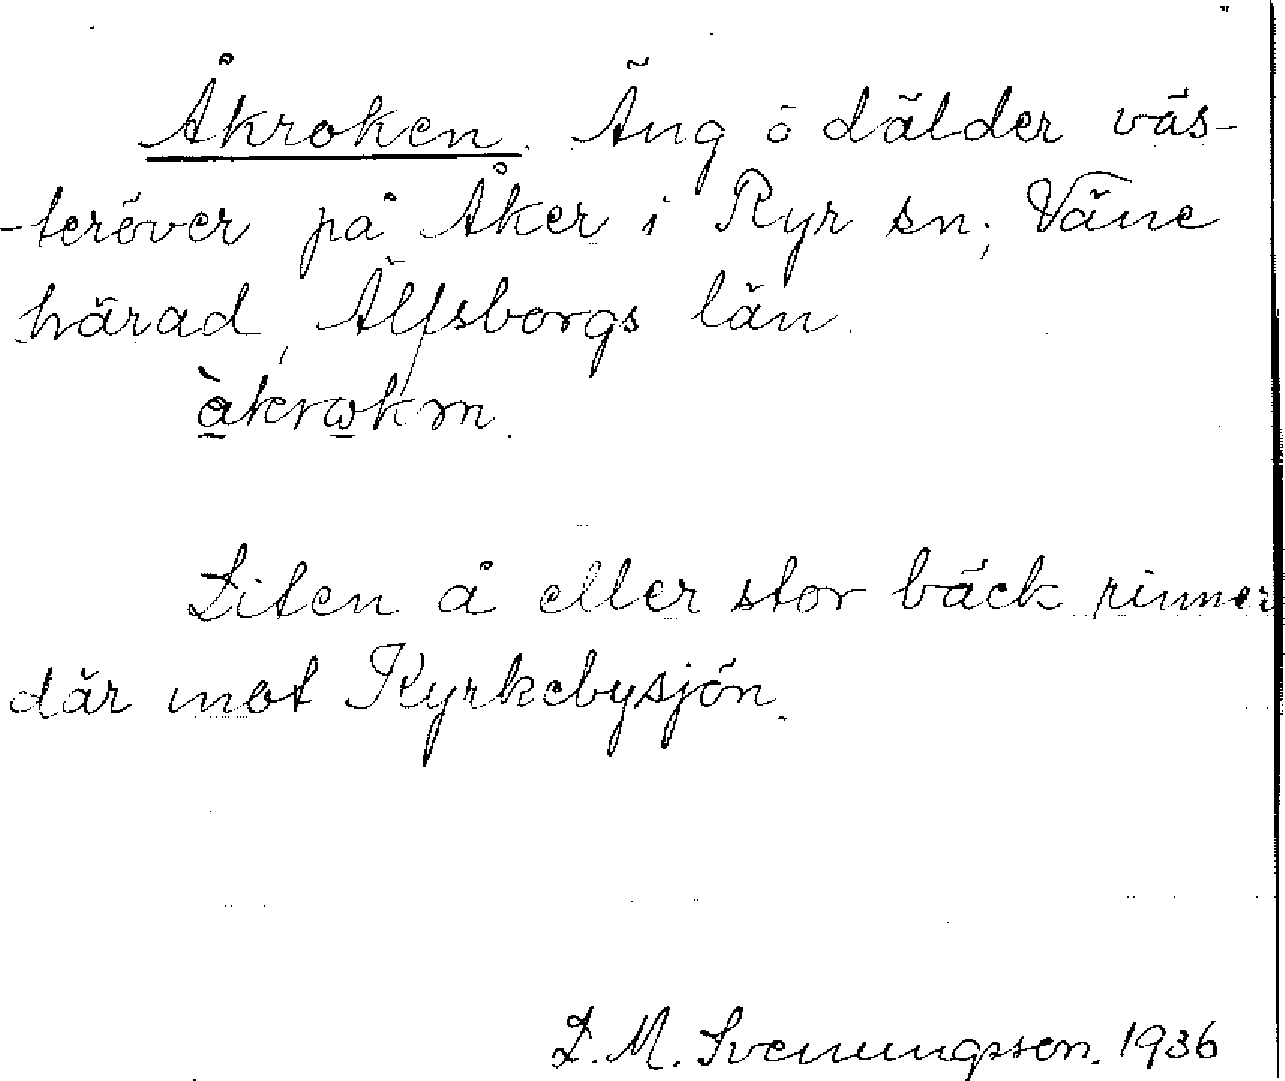 Åkroken. Äng ö dälder väs-
-teröver på Åker i Ryr sn; Väne
härad, Älfsborgs län.
Liten å eller stor bäck rinner
där mot Kyrkebysjön.
L. M. Svenungsson. 1936